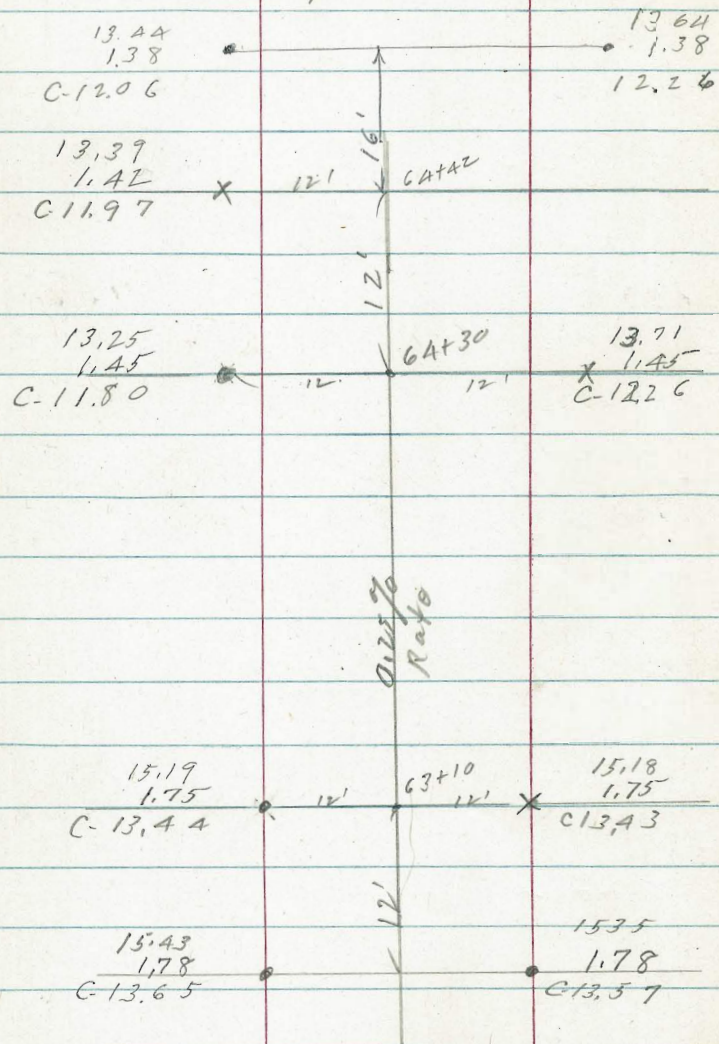 13.44
1.38
C-12.06
13 64
1.38
12.26
16'
13,39
1.42
C-11.97
12'
64+42
12'
13,25
1.45
C-11.80
12
64+30
12'
13.71
1.45
C-12.26
0.25%
Rate
15,19
1.75
C-13,44
12'
63+10
12'
15,18
1.75
C13,43
12'
15.43
1,78
C-13.65
1535
1.78
C-13.57